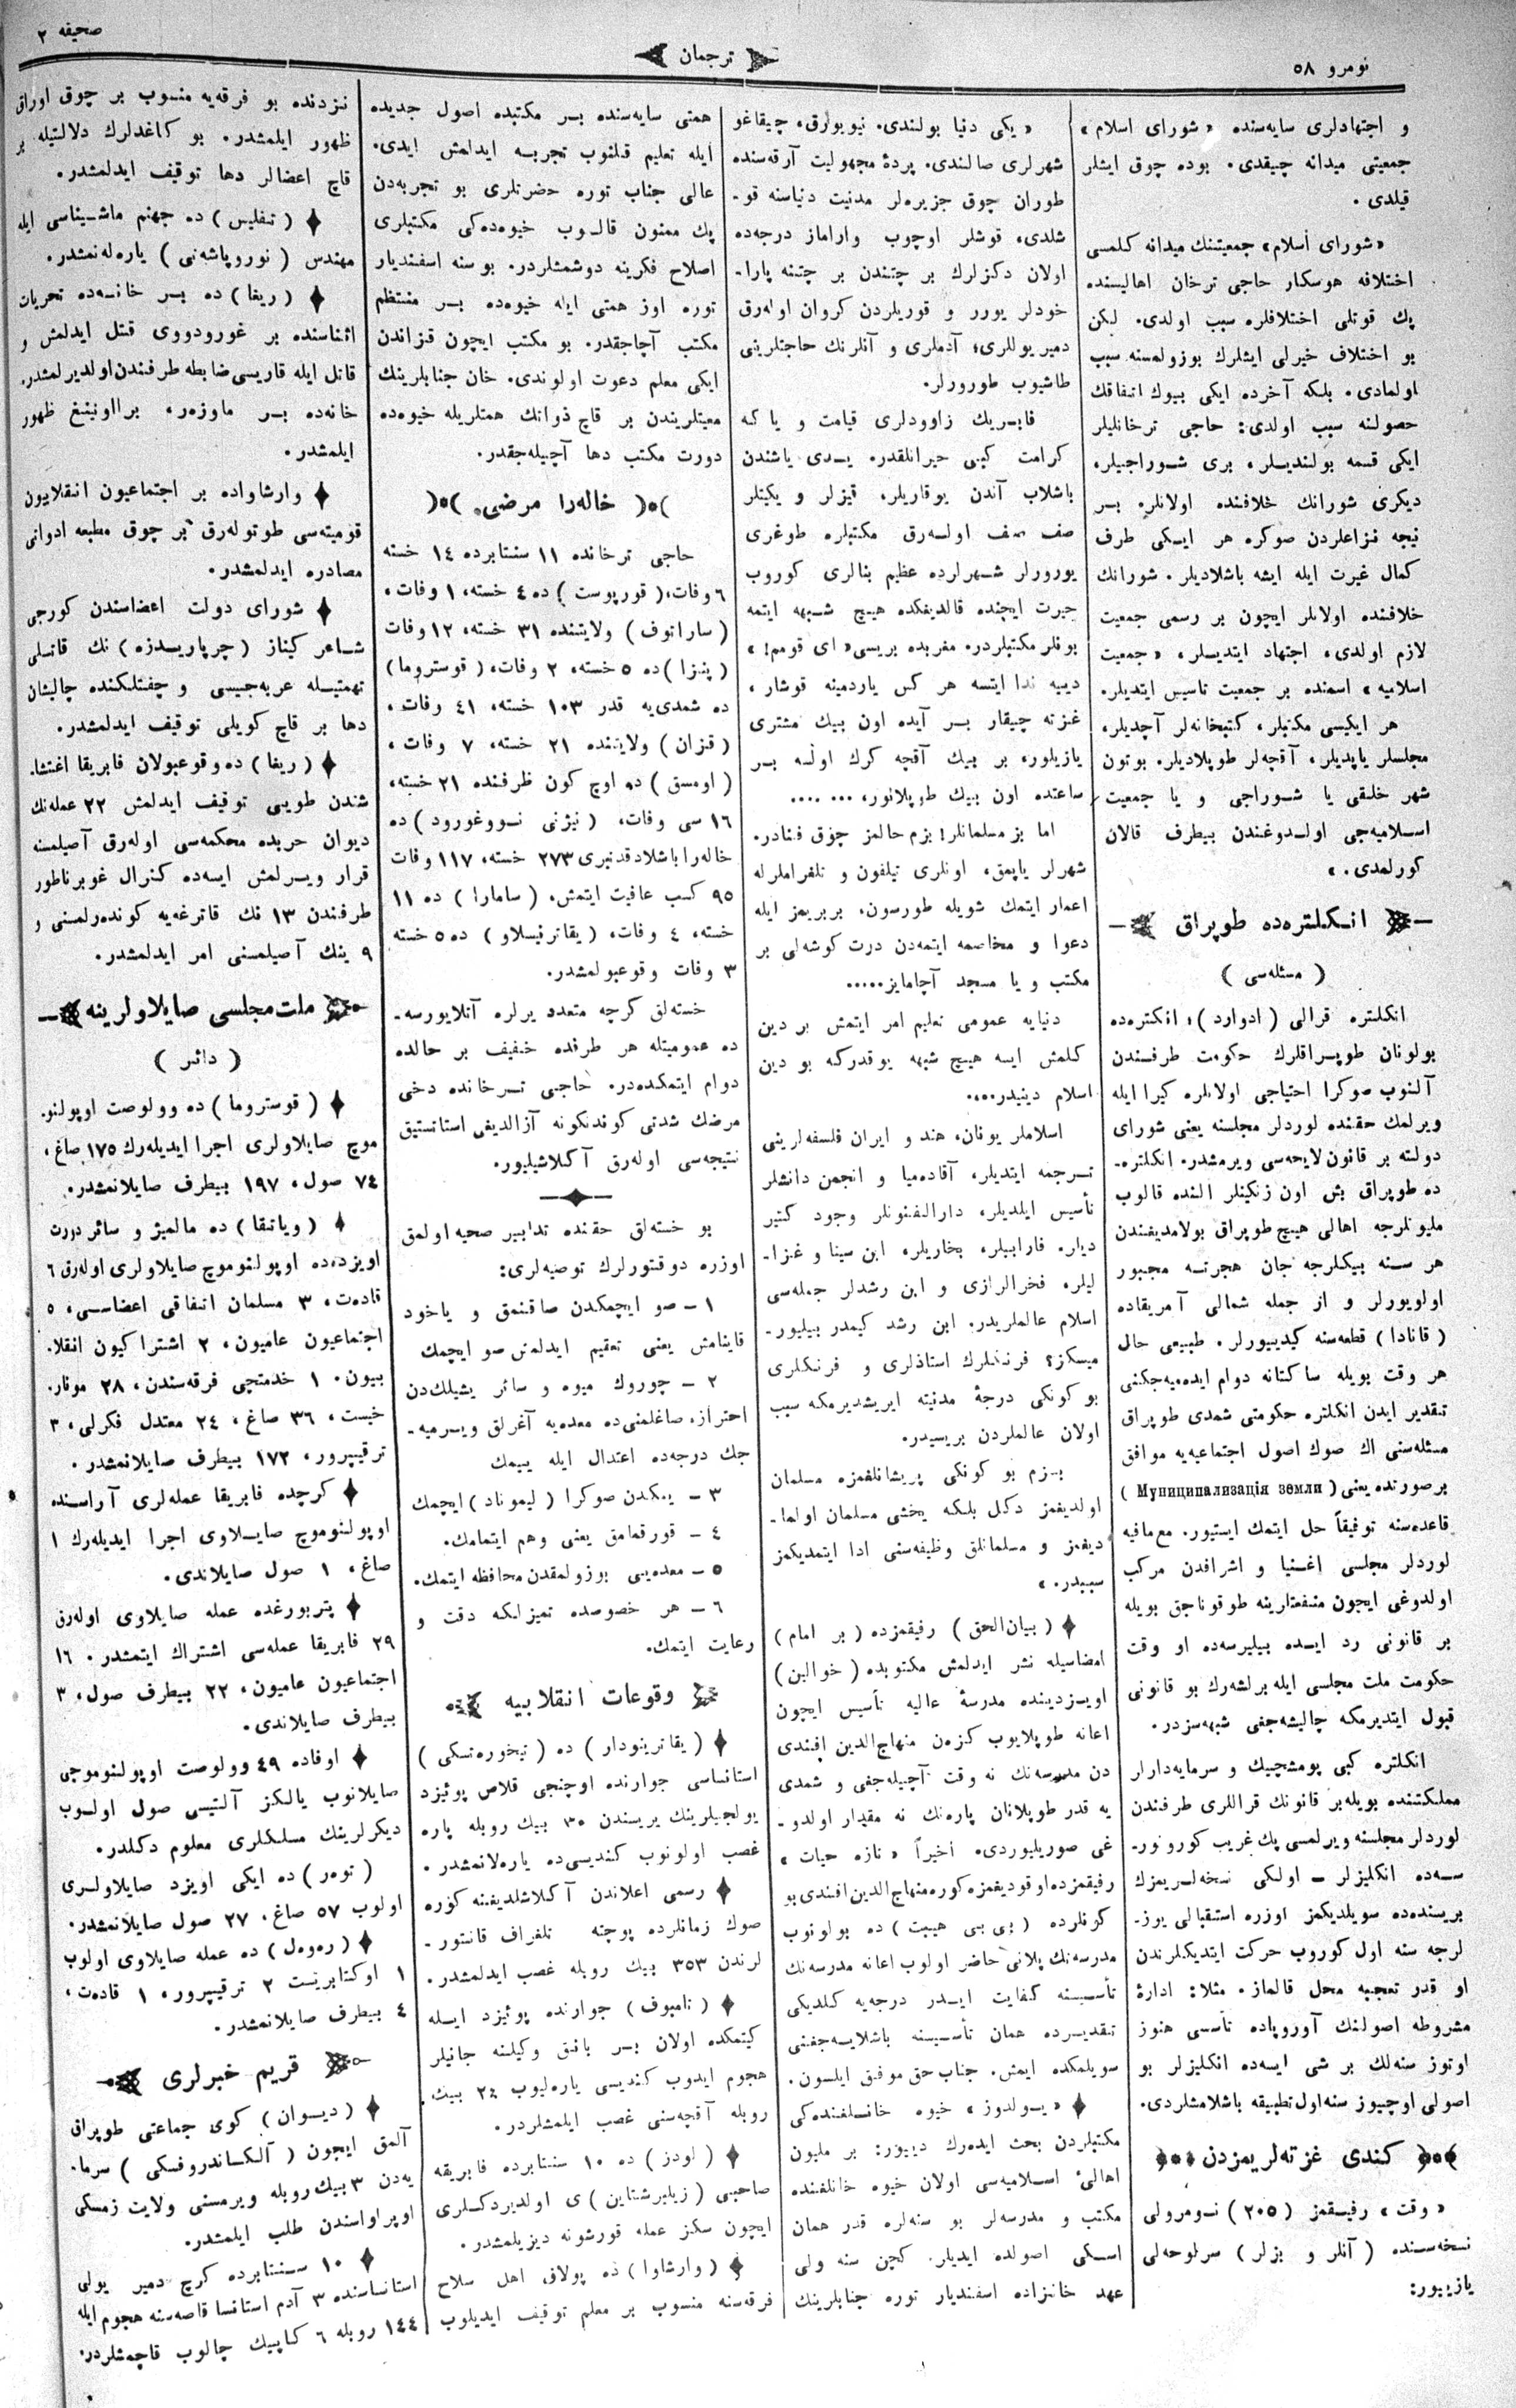 نومرو ٥٨
ترجمان
صحیفه ٢
و اجتهادلری سایه‌سنده «شورای اسلام»
جمعیتی میدانه چیقدی. بوده چوق ایشلر
قیلدی.
«شورای اسلام» جمعیتنك میدانه كلمسی
اختلافه هوسكار حاجی ترخان اهالیسنده
پك قوتلی اختلافلره سبب اولدی. لكن
بو اختلاف خیرلی ایشلرك بوزولمسنه سبب
اولمادی. بلكه آخرده ایكی بیوك اتفاقك
حصولنه سبب اولدی: حاجی ترخانلیلر
ایكی قسمه بولندیلر، بری شوراجیلر،
دیكری شورانك خلافنده اولانلر. بر
نیچه نزاعلردن صوكره هر ایكی طرف
كمال غیرت ایله ایشه باشلادیلر. شورانك
خلافنده اولانلر ایچون بر رسمی جمعیت
لازم اولدی، اجتهاد ایتدیلر، «جمعیت
اسلامیه» اسمنده بر جمعیت تاسیس ایتدیلر.
هر ایكیسی مكتبلر، كتبخانه‌لر آچدیلر،
مجلسلر یاپدیلر، آقچه‌لر طوپلادیلر. بوتون
شهر خلقی یا شوراجی و یا جمعیت
اسلامیه‌جی اولدوغندن بیطرف قالان
كورلمدی.»
انكلتره‌ده طوپراق
(مسئله‌سی)
انكلتره قرالی (ادوارد)، انكتره‌ده
بولونان طوپراقلرك حكومت طرفندن
آلنوب صوكرا احتیاجی اولانلره كیرا ایله
ویرلمك حقنده لوردلر مجلسنه یعنی شورای
دولته بر قانون لایحه‌سی ویرمشدر. انكلتره‌-
ده طوپراق بش اون زنكینلر النده قالوب
ملیونلرجه اهالی هیچ طوپراق بولامدیغندن
هر سنه بیكلرجه جان هجرته مجبور
اولویورلر و از جمله شمالی آمریقاده
(قانادا) قطعه‌سنه كیدییورلر. طبیعی حال
هر وقت بویله ساكتانه دوام ایده‌میه‌جكنی
تقدیر ایدن انكلتره حكومتی شمدی طوپراق
مسئله‌سنی اك صوك اصول اجتماعیه‌یه موافق
برصورتده یعنی (Муниципализація земли)
قاعده‌سنه توفیقاً حل ایتمك ایستیور. مع‌مافیه
لوردلر مجلسی اغنیا و اشرافدن مركب
اولدوغی ایچون منفعتلرینه طوقوناجق بویله
بر قانونی رد ایده بیلیرسه‌ده او وقت
حكومت ملت مجلسی ایله برلشه‌رك بو قانونی
قبول ایتدیرمكه چالیشه‌جغی شبهه‌سزدر.
انكلتره كبی پومشچیك و سرمایه‌دارلر
مملكتنده بویله‌بر قانونك قراللری طرفندن
لوردلر مجلسنه ویرلمسی پك غریب كورونور-
سه‌ده انكلیزلر - اولكی نسخه‌لریمزك
بریسنده‌ده سویلدیكمز اوزره استقبالی یوز-
لرجه سنه اول كوروب حركت ایتدیكلرندن
او قدر تعجبه محل قالماز. مثلا: ادارۀ
مشروطه اصولنك آوروپاده تأسسی هنوز
اوتوز سنه‌لك بر شی ایسه‌ده انكلیزلر بو
اصولی اوچیوز سنه‌اول تطبیقه باشلامشلردی.
كندی غزته‌لریمزدن
«وقت» رفیقمز (٢٠٥) نومرولی
نسخه‌سنده (آنلر و بزلر) سرلوحه‌لی
یازییور:
«یكی دنیا بولندی. نیویورق، چیقاغو
شهرلری صالندی. پردۀ مجهولیت آرقه‌سنده
طوران چوق جزیره‌لر مدنیت دنیاسنه قو-
شلدی، قوشلر اوچوب واراماز درجه‌ده
اولان دكزلرك بر چتندن بر چتنه پارا-
خودلر یورر و قوریلردن كروان اوله‌رق
دمیر یوللری؛ آدملری و آنلرنك حاجتلرینی
طاشیوب طورورلر.
فابریك زاوودلری قیامت و یا كه
كرامت كبی حیرانلقدر. یدی یاشندن
باشلاب آندن یوقاریلر، قیزلر و یكیتلر
صف صف اوله‌رق مكتبلره طوغری
یورورلر شهرلرده عظیم بنالری كوروب
حیرت ایچنده قالدیغكده هیچ شبهه ایتمه
بونلر مكتبلردر. مغربده بریسی «ای قومم!»
دییه ندا ایتسه هر كس یاردمینه قوشار،
غزته چیقار بر آیده اون بیك مشتری
یازیلور، بر بیك آقچه كرك اولسه بر
ساعتده اون بیك طوپلانور، ... ....
اما بز مسلمانلر! بزم حالمز چوق فنادر.
شهرلر یاپمق، اونلری تیلفون و تلغرافلرله
اعمار ایتمك شویله طورسون، بربریمز ایله
دعوا و مخاصمه ایتمه‌دن درت كوشه‌لی بر
مكتب و یا مسجد آچامایز.....
دنیایه عمومی تعلیم امر ایتمش بر دین
كلمش ایسه هیچ شبهه یوقدركه بو دین
اسلام دینیدر....
اسلاملر یونان، هند و ایران فلسفه‌لرینی
ترجمه ایتدیلر، آقاده‌میا و انجمن دانشلر
تأسیس ایلدیلر، دارالفنونلر وجود كتیر
دیلر. فارابیلر، بخاریلر، ابن سینا و غزا-
لیلر، فخرالرازی و ابن رشدلر جمله‌سی
اسلام عالملریدر. ابن رشد كیمدر بیلیور-
میسكز؟ فرنكلرك استاذلری و فرنكلری
بو كونكی درجۀ مدنیته ایریشدیرمكه سبب
اولان عالملردن بریسیدر.
بزم بو كونكی پریشانلغمزه مسلمان
اولدیغمز دكل بلكه یخشی مسلمان اولما-
دیغمز و مسلمانلق وظیفه‌سنی ادا ایتمدیكمز
سببدر.»
(بیان‌الحق) رفیقمزده (بر امام)
امضاسیله نشر ایدلمش مكتوبده (خوالین)
اویزدینده مدرسۀ عالیه تأسیس ایچون
اعانه طوپلایوب كزه‌ن منهاج‌الدین افندی
دن مدرسه‌نك نه وقت آچیله‌جغی و شمدی
یه قدر طوپلانان پاره‌نك نه مقدار اولدو-
غی صوریلیوردی. اخیراً «تازه حیات»
رفیقمزده‌اوقودیغمزه كوره منهاج‌الدین افندی بو
كونلرده (بی بی هیبت) ده بولونوب
مدرسه‌نك پلانی حاضر اولوب اعانه مدرسه‌نك
تأسیسنه كفایت ایدر درجه‌یه كلدیكی
تقدیرده همان تأسیسنه باشلایه‌جغنی
سویلمكده ایمش. جناب حق موفق ایلسون.
«یولدوز» خیوه خانلغنده‌كی
مكتبلردن بحث ایده‌رك دییور: بر ملیون
اهالئ اسلامیه‌سی اولان خیوه خانلغنده
مكتب و مدرسه‌لر بو سنه‌لره قدر همان
اسكی اصولده ایدیلر. كچن سنه ولی
عهد خانزاده اسفندیار توره جنابلرینك
همتی سایه‌سنده بر مكتبده اصول جدیده
ایله تعلیم قلنوب تجربه ایدلمش ایدی.
عالی جناب توره حضرتلری بو تجربه‌دن
پك ممنون قالوب خیوه‌ده‌كی مكتبلری
اصلاح فكرینه دوشمشلردر. بو سنه اسفندیار
توره اوز همتی ایله خیوه‌ده بر منتظم
مكتب آچاجقدر. بو مكتب ایچون قزاندن
ایكی معلم دعوت اولوندی. خان جنابلرینك
معیتلریندن بر قاچ ذواتك همتلریله خیوه‌ده
دورت مكتب دها آچیله‌جقدر.
خاله‌را مرضی.
حاجی ترخانده ١١ سنتابرده ١٤ خسته
٦ وفات، (قورپوست) ده ٤ خسته، ١ وفات،
(ساراتوف) ولایتنده ٣١ خسته، ١٢ وفات
(پنزا) ده ٥ خسته، ٢ وفات، (قوستروما)
ده شمدی‌یه قدر ١٠٣ خسته، ٤١ وفات،
(قزان) ولایتنده ٢١ خسته، ٧ وفات،
(اومسق) ده اوچ كون ظرفنده ٢١ خسته،
١٦ سی وفات، (نیژنی نووغورود) ده
خاله‌را باشلادقدنبری ٢٧٣ خسته، ١١٧ وفات
٩٥ كسب عافیت ایتمش، (سامارا) ده ١١
خسته، ٤ وفات، (یقاترنیسلاو) ده ٥ خسته
٣ وفات وقوعبولمشدر.
خسته‌لق كرچه متعدد یرلره آتلایورسه-
ده عمومیتله هر طرفده خفیف بر حالده
دوام ایتمكده‌در. حاجی ترخانده دخی
مرضك شدتی كوندنكونه آزالدیغی استاتستیق
نتیجه‌سی اوله‌رق آكلاشیلیور.
بو خسته‌لق حقنده تدابیر صحیه اولمق
اوزره دوقتورلرك توصیه‌لری:
١ - صو ایچمكدن صاقنمق و یاخود
قاینامش یعنی تعقیم ایدلمش صو ایچمك
٢ - چوروك میوه و سائر یشیللك‌دن
احتراز، صاغلمنی‌ده معده‌یه آغرلق ویرمیه-
جك درجه‌ده اعتدال ایله ییمك
٣ - یمكدن صوكرا (لیموناد) ایچمك
٤ - قورقمامق یعنی وهم ایتمامك.
٥ - معده‌یی بوزولمقدن محافظه ایتمك.
٦ - هر خصوصده تمیزلكه دقت و
رعایت ایتمك.
وقوعات انقلابیه
(یقاترینودار) ده (تیخوره‌تسكی)
استانساسی جوارنده اوچنجی قلاس پوئیزد
یولجیلرینك بریسندن ٣٠ بیك روبله پاره
غصب اولونوب كندیسی‌ده یاره‌لانمشدر.
رسمی اعلاندن آكلاشلدیغنه كوره
صوك زمانلرده پوچته تلغراف قانتور-
لرندن ٣٥٣ بیك روبله غصب ایدلمشدر.
(تامبوف) جوارنده پوئیزد ایله
كیتمكده اولان بر بانق وكیلنه جانیلر
هجوم ایدوب كندیسی یاره‌لیوب ٢٤ بیك
روبله آقچه‌سنی غصب ایلمشلردر.
(لودز) ده ١٠ سنتابرده فابریقه
صاحبی (زیلبرشتاین) ی اولدیردكلری
ایچون سكز عمله قورشونه دیزیلمشدر.
(وارشاوا) ده پولاق اهل سلاح
فرقه‌سنه منسوب بر معلم توقیف ایدیلوب
نزدنده بو فرقه‌یه منسوب بر چوق اوراق
ظهور ایلمشدر. بو كاغدلرك دلالتیله بر
قاچ اعضالر دها توقیف ایدلمشدر.
(تفلیس) ده جهنم ماشیناسی ایله
مهندس (نوروپاشه‌نی) یاره‌له‌نمشدر.
(ریغا) ده بر خانه‌ده تحریات
اثناسنده بر غورودووی قتل ایدلمش و
قاتل ایله قاریسی ضابطه طرفندن اولدیرلمشدر.
خانه‌ده بر ماوزه‌ر، براونینغ ظهور
ایلمشدر.
وارشاواده بر اجتماعیون انقلابیون
قومیته‌سی طوتوله‌رق بر چوق مطبعه ادواتی
مصادره ایدلمشدر.
شورای دولت اعضاسندن كورجی
شاعر كیناز (چرپاریدزه) نك قاتلی
تهمتیله عربه‌جیسی و چفتلكنده چالیشان
دها بر قاچ كویلی توقیف ایدلمشدر.
(ریغا) ده وقوعبولان فابریقا اغتشا-
شندن طویی توقیف ایدلمش ٢٢ عمله‌نك
دیوان حربده محكمه‌سی اوله‌رق آصیلمسنه
قرار ویرلمش ایسه‌ده كنرال غوبرناطور
طرفندن ١٣ نك قاترغه‌یه كونده‌رلمسنی و
٩ ینك آصیلمسنی امر ایدلمشدر.
ملت مجلسی صایلاولرینه
(دائر)
(قوستروما) ده وولوصت اوپولنو-
موچ صایلاولری اجرا ایدیله‌رك ١٧٥ صاغ،
٧٤ صول، ١٩٧ بیطرف صایلانمشدر.
(ویاتقا) ده مالمیژ و سائر دورت
اویزده‌ده اوپولنوموچ صایلاولری اوله‌رق ٦
قاده‌ت، ٣ مسلمان اتفاقی اعضاسی، ٥
اجتماعیون عامیون، ٢ اشتراكیون انقلا-
بیون. ١ خدمتچی فرقه‌سندن، ٢٨ مونار-
خیست، ٣٦ صاغ، ٢٤ معتدل فكرلی، ٣
ترقیپرور، ١٧٢ بیطرف صایلانمشدر.
كرچده فابریقا عمله‌لری آراسنده
اوپولنوموچ صایلاوی اجرا ایدیله‌رك ١
صاغ، ١ صول صایلاندی.
پتربورغده عمله صایلاوی اوله‌رق
٢٩ فابریقا عمله‌سی اشتراك ایتمشدر. ١٦
اجتماعیون عامیون، ٢٢ بیطرف صول، ٣
بیطرف صایلاندی.
اوفاده ٤٩ وولوصت اوپولنوموچی
صایلانوب یالكز آلتیسی صول اولوب
دیكرلرینك مسلكلری معلوم دكلدر.
(توه‌ر) ده ایكی اویزد صایلاولری
اولوب ٥٧ صاغ، ٢٧ صول صایلانمشدر.
(ره‌وه‌ل) ده عمله صایلاوی اولوب
١ اوكتابریست ٢ ترقیپرور، ١ قاده‌ت،
٤ بیطرف صایلانمشدر.
قریم خبرلری
(دیوان) كوی جماعتی طوپراق
آلمق ایچون (آلكساندروفسكی) سرما-
یه‌دن ٣ بیك روبله ویرمسنی ولایت زمسكی
اوپراواسندن طلب ایلمشدر.
١٠ سنتابرده كرچ دمیر یولی
استانساسنده ٣ آدم استانسا قاصه‌سنه هجوم ایله
١٤٤ روبله ٦ كاپیك چالوب قاچمشلردر.